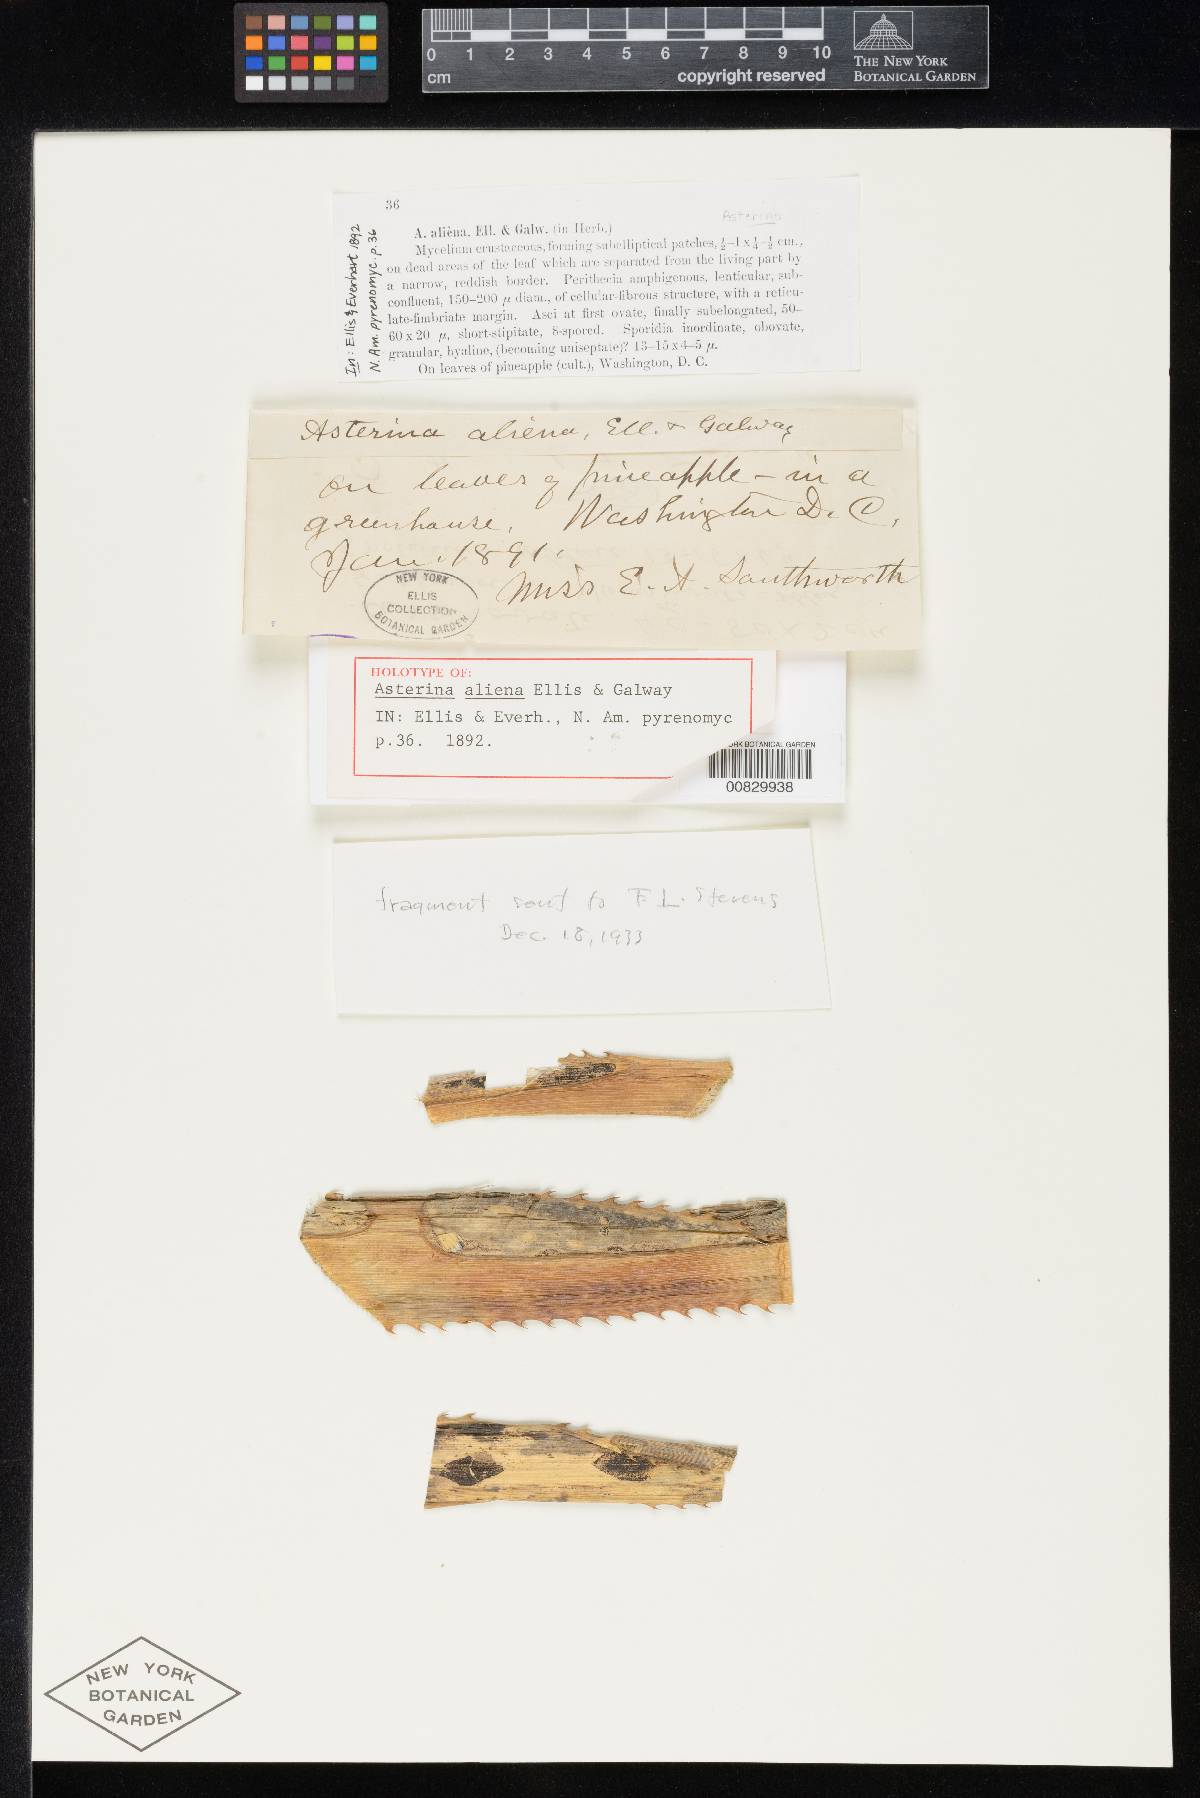 0 1 2 3 4 5 6 7 8 9 10
cm
copyright reserved
THE NEW YORK
BOTANICAL GARDEN
36
Asterina
In: Ellis & Everhart 1892
N. Am. pyrenomyc. p. 36
A. alièna, Ell. & Galw. (in Herb.)
Mycelium crustaceous, forming subelliptical patches, ½–1 x ¼–½ cm.,
on dead areas of the leaf which are separated from the living part by
a narrow, reddish border. Perithecia amphigenous, lenticular, sub-
confluent, 150–200 µ diam., of cellular-fibrous structure, with a reticu-
late-fimbriate margin. Asci at first ovate, finally subelongated, 50–
60 x 20 µ, short-stipitate, 8-spored. Sporidia inordinate, obovate,
granular, hyaline, (becoming uniseptate)? 13–15 x 4–5 µ.
On leaves of pineapple (cult.), Washington, D. C.
Asterina aliena, Ell. & Galway
on leaves of pineapple – in a
greenhouse. Washington D. C.
Jan. 1891.
Miss E. A. Southworth
NEW YORK
ELLIS
COLLECTION
BOTANICAL GARDEN
HOLOTYPE OF:
Asterina aliena Ellis & Galway
IN: Ellis & Everh., N. Am. pyrenomyc
p.36. 1892.
ORK BOTANICAL GARDEN
00829938
fragment sent to F. L. Stevens
Dec. 18, 1933
NEW YORK
BOTANICAL
GARDEN